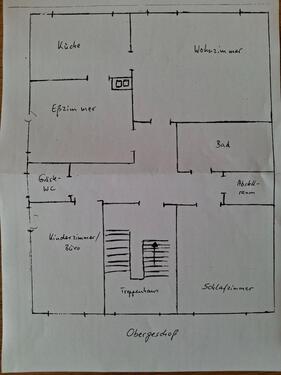 Küche
Wohnzimmer
Eßzimmer
Bad
Gäste-
WC
Abstell-
raum
Kinderzimmer/
Büro
Treppenhaus
Schlafzimmer
Obergeschoß